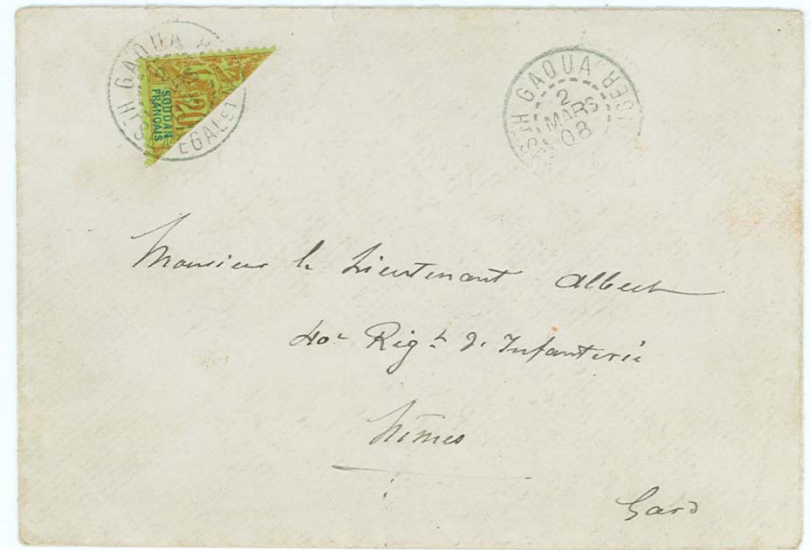 GAOUA
EGALE
20
SOUDAN
FRANÇAIS
GAOUA
2
MARS
08
Monsieur le Lieutenant Albert
40e Rigt d'Infanterie
Nîmes
Gard